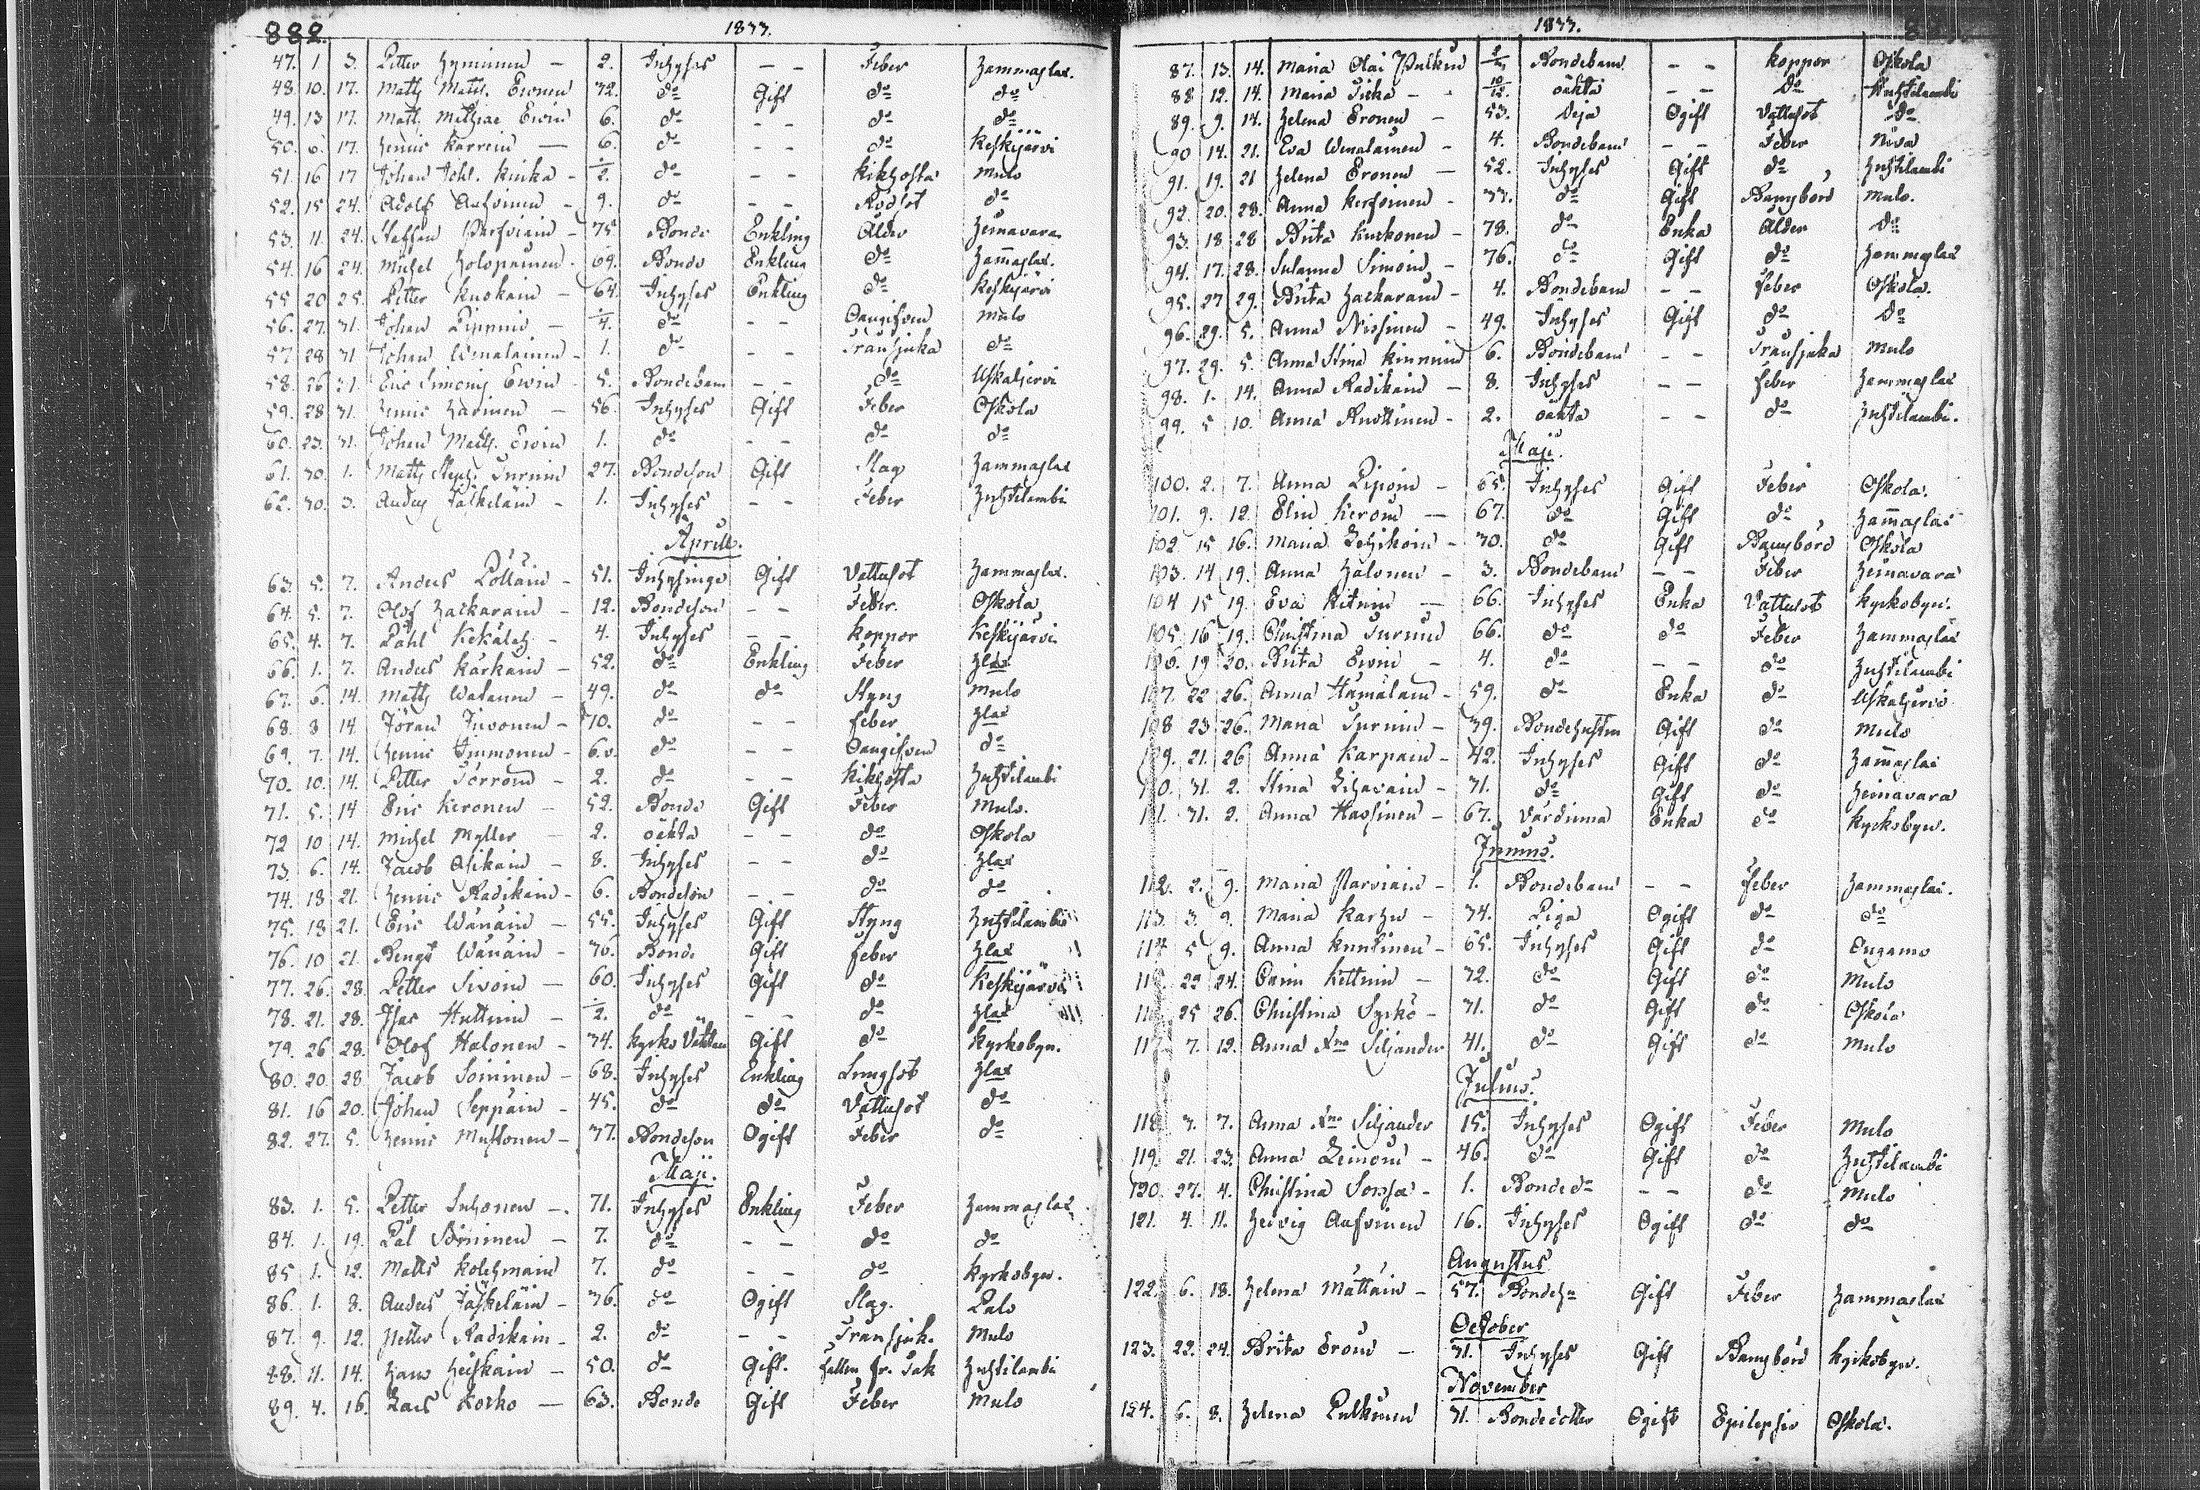 882.
1833.
47. 1 3. Petter Hyninen – 2. Inhyses – – Feber Hammaslax.
48 10. 17. Matts Matts. Eronen 72. do Gift do do
49. 13 17. Matts Mathiae Eroin 6. do – – do do
50. 6. 17. Henric Karrein — 6. do – – do Keskijärvi
51. 16 17 Johan Joh. Kuika – ÷/2. do – – Kikhosta Mulo
52. 15 24. Adolf Aufvinen – 9. do – – Rödsot do
53. 11. 24. Staffan Parfviain – 75 Bonde Enkling Ålder Heinavara
54. 16 24. Michel Holopainen – 69. Bonde Enkling do Hammaslax.
55 20 25. Petter Kuokain – 64. Inhyses Enkling do Keskijärvi
56. 27. 31. Johan Piponi – ÷/4. do – – Oangifven Mulo
57 28 31 Johan Wenalainen – 1. do – – Trånsjuka do
58. 26 31 Eric Simonis Eroin – 5. Bondebarn – – do Uskaljervi
59. 28 31. Henric Harinen – 56. Inhyses Gift Feber Oskola
60. 23. 31. Johan Matts. Eroin 1. do – – do do
61. 30. 1. Matts Steph. Turunen 27. Bondeson Gift Slag Hammaslax
62. 30. 3. Anders Jäskeläin – 1. Inhyses – – Feber Huhtilambi
Aprill.
63. 5. 7. Anders Pöllain – 51. Inhysinge Gift Vattusot Hammaslax.
64. 5. 7. Olof Hackarain – 12. Bondeson – – Feber. Oskola
65. 4. 7. Påhl Kekäleh – 4. Inhyses – – Koppor Keskijärvi
66. 1. 7. Anders Kärkäin – 52. do Enkling Feber Hlax
67. 6. 14. Matts Watanen – 49. do do Styng Mulo
68. 8 14. Jöran Juvonen – 70. do – – feber Hlax
69. 7. 14. Henric Immonen – 6.v. do – – Oangifven do
70. 10. 14. Petter Törröin – 2. do – – Kikhosta Huhtilambi
71. 5. 14 Eric Keronen – 52. Bonde Gift Feber Mulo.
72 10 14. Michel Myller – 2. oäkta – – do Oskola
73. 6. 14. Jacob Asikain – 8. Inhyses – – do Hlax
74. 18 21. Henric Radikain – 6. Bondeson – – do do
75. 18 21. Eric Wänäin – 55. Inhyses Gift Styng Huhtilambi
76. 10 21. Bengt Wänäin – 76. Bonde Gift feber Hlax
77. 26. 28. Petter Sivoin – 60. Inhyses Gift do Keskijärvi
78. 21. 28. Isac Huttuin – ÷/2. do – – do Hlax
79. 26 28. Olof Halonen – 74. Kyrko Väktare Gift do Kyrkobyn.
80. 20 28. Jacob Soininen – 68. Inhyses Enkling Lungsot Hlax
81. 16 20. Johan Seppäin – 45. do do Vattusot do
82. 27. 5. Henric Mustonen – 37. Bondeson Ogift Feber do
Maji.
83. 1. 5. Petter Inhonen – 71. Inhyses Enkling Feber Hammaslax
84. 1. 19. Pål Sörninen – 7. do – – do do
85 1. 12. Matts Kolehmain 7. do – – do Kyrkobyn.
86. 1. 8. Anders Jäskeläin – 36. do Ogift Slag. Palo
87. 9. 12. Petter Radikain – 2. do – – Trånsjuk. Mulo
88. 11. 14. Hans Heiskain – 50. do Gift. fallen fr. Tak Huhtilambi
89. 4. 16. Lars Korho — 63. Bonde Gift Feber Mulo
1833.
87. 13. 14. Maria Olai Pulkin Bondebarn – – Koppor Oskola
88 12. 14. Maria Tiska – 10/12. oäkta – – do Huhtilambi
89. 9. 14. Helena Eronen – 53. Deja Ogift Vattusot do
90 14. 21. Eva Wenalainen – 4. Bondebarn – – Feber Niva
91. 19. 21 Helena Eronen — 52. Inhyses Gift do Huhtilambi
92. 20. 28. Anna Kerfvinen – 33. do Gift Barnsbörd Mulo.
93. 18 28 Brita Kurkonen – 78. do Enka Ålder do
94. 17. 28. Susanna Simoin – 76. do Gift do Hammaslax
95. 27 29. Brita Hackarain – 4. Bondebarn – – feber Oskola.
96. 29. 5. Anna Nissinen – 49. Inhyses Gift do do
97. 29. 5. Anna Stina Kinnuin 6. Bondebarn – – Trånsjuka Mulo
98. 1. 14. Anna Radikain – 8. Inhyses – – feber Hammaslax
99. 5 10. Anna Ruottinen – 2. oäkta – – do Huhtilambi.
Maji.
100. 2. 7. Anna Pipoin – 65. Inhyses Gift Feber Oskola.
101. 9. 12. Elin Keroin — 67. do Gift do Hammaslax
102 15 16. Maria Leskoin – 30. do Gift Barnsbörd Oskola
103. 14 19. Anna Halonen – 3. Bondebarn – – Feber Heinavara
104 15 19. Eva Kituin — 66. Inhyses Enka Vattusot Kyrkobyn.
105. 16 19. Christina Turuin 66. do do Feber Hammaslax
106. 19 30. Brita Eroin – 4. do – – do Huhtilambi
107. 22 26. Anna Hämäläin – 59. do Enka do Uskaljervi
108 23 26. Maria Turuin – 39. Bondehustru Gift do Mulo
109. 21. 26 Anna Karpain – 42. Inhyses Gift do Hammaslax
110. 31. 2. Stina Lihavain – 71. do Gift do Heinavara
111. 31. 2. Anna Hassinen – 67. Värdinna Enka do Kyrkobyn.
Junius.
112. 2. 9. Maria Parviain – 1. Bondebarn – – feber Hammaslax.
113. 3. 9. Maria Karhu – 34. Piga Ogift do do
114 5 9. Anna Kuntinen – 65. Inhyses Gift do Onganso
115. 22 24. Carin Kettuin – 72. do Gift do Mulo
116. 25 26. Christina Syrkö – 71. do Gift do Oskola
117. 7. 12. Anna Xna Siljander 41. do Gift do Mulo
Julius.
118 3. 7. Anna Xna Siljander 15. Inhyses Ogift Feber Mulo
119. 21. 23. Anna Leinoin – 46. do Gift do Huhtilambi
120. 27. 4. Christina Sorsa – 1. Bonde do – – do Mulo
121. 4. 11. Hedvig Aufvinen 16. Inhyses Ogift do do
Augustus
122. 6. 18. Helena Mattain – 57. Bondeh. Gift Feber Hammaslax
October
123. 22. 24. Brita Eroin – 31. Inhyses Gift Barnsbörd Kyrkobyn.
November
124. 6. 8. Helena Pulkinen 31. Bondedotter Ogift Epilepsie Oskola.